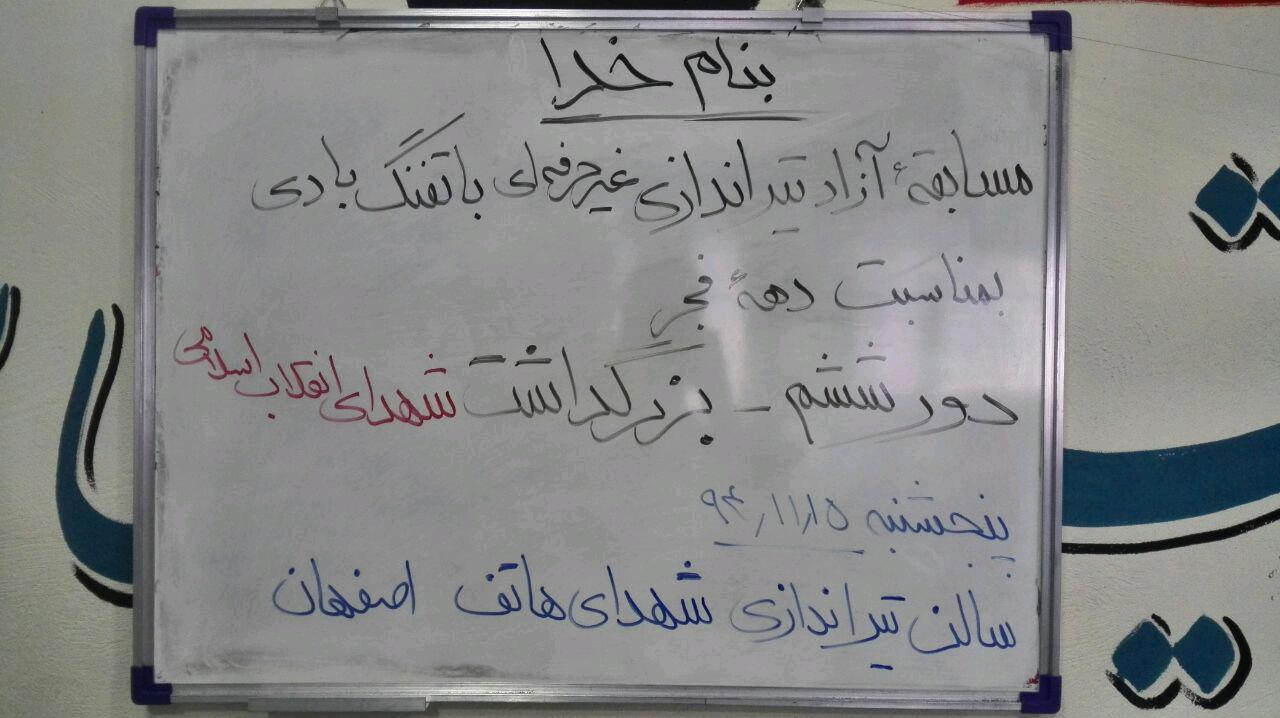 بنام خدا
مسابقهٔ آزاد تیراندازی غیرحرفه‌ای با تفنگ بادی
بمناسبت دههٔ فجر
دور ششم - بزرگداشت شهدای انقلاب اسلامی
پنجشنبه ۹۴/۱۱/۱۵
سالن تیراندازی شهدای هاتف اصفهان